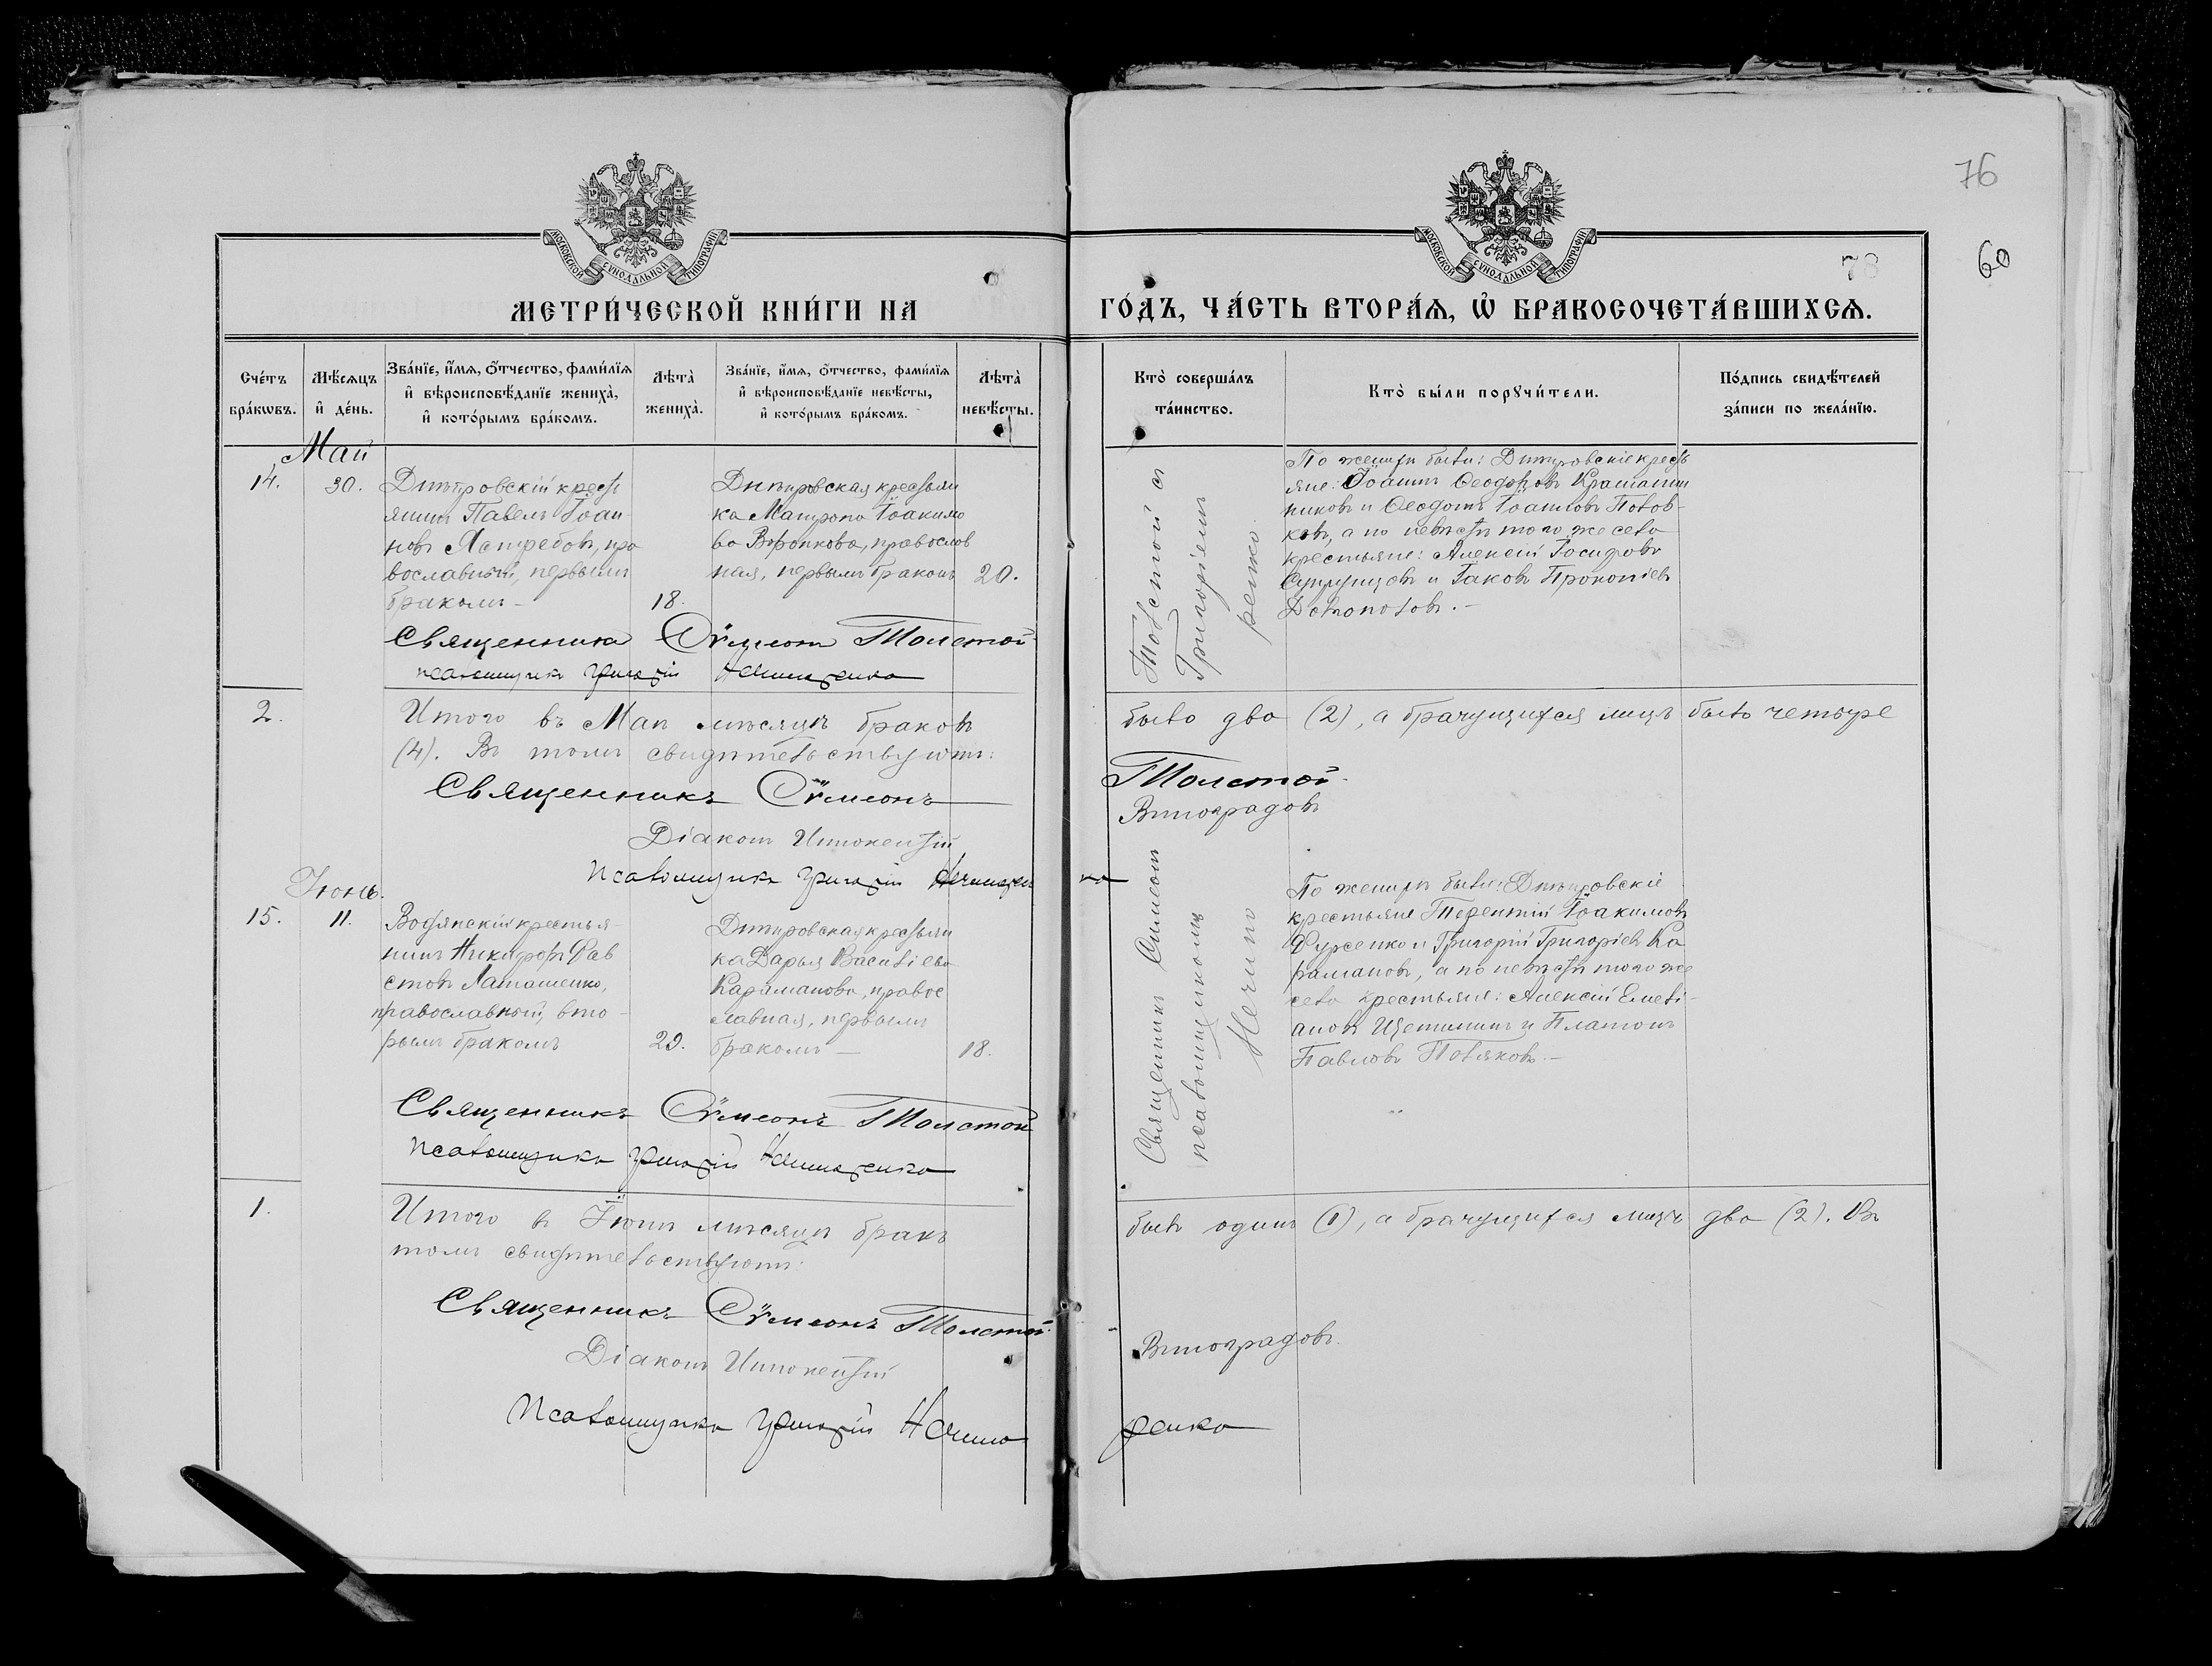 76
60
78
МОСКОВСКОЙ СѴНОДАЛЬНОЙ ТИПОГРАФІИ
МОСКОВСКОЙ СѴНОДАЛЬНОЙ ТИПОГРАФІИ
МЕТРИ́ЧЕСКОЙ КНИ́ГИ НА
ГО́ДЪ, ЧА́СТЬ ВТОРА́Ѧ, Ѡ҆ БРАКОСОЧЕТА́ВШИХСѦ.
Сче́тъ бра́кѡвъ.
Мѣ́сѧцъ и҆ де́нь.
Зва́нїе, и҆́мѧ, ѻ҆́тчество, фами́лїѧ
и҆ вѣроисповѣ́данїе жениха̀,
и҆ кото́рымъ бра́комъ.
Лѣта̀ жениха̀.
Зва́нїе, и҆́мѧ, ѻ҆́тчество, фами́лїѧ
и҆ вѣроисповѣ́данїе невѣ́сты,
и҆ кото́рымъ бра́комъ.
Лѣта̀ невѣ́сты.
Кто̀ соверша́лъ
та́инство.
Кто̀ бы́ли порꙋчи́тели.
По́дпись свидѣ́телей
за́писи по жела́нїю.
Май
14.
30.
Дмитровскій кресть
янинъ Павелъ Іоан
новъ Ястребовъ, пра
вославный, первымъ
бракомъ
18.
Дмитровская крестьян
ка Матрона Іоакимо
ва Воронкова, православ
ная, первымъ бракомъ
20.
Толстой съ
Григоріемъ
ренко.
По женихѣ были: Дмитровскіе кресть
яне: Іоаннъ Ѳеодоровъ Крашанин
никовъ и Ѳеодотъ Іоанновъ
ковъ, а по невѣстѣ того же села
крестьяне: Алексій Іосифовъ
Супрунцовъ и Іаковъ Прокопіевъ
Священникъ Сѵмеонъ Толстой
псаломщикъ Григорій Нечипоренко
2.
Итого въ Маѣ мѣсяцѣ браковъ
было два (2), а брачущихся лицъ было четыре
(4). Въ томъ свидѣтельствуютъ:
Священникъ Сѵмеонъ Толстой
Діаконъ Иннокентій Виноградовъ
Псаломщикъ Григорій Нечипорен
ко
Іюнь.
15.
11.
Водянскій крестья
нинъ Никифоръ Фав
стовъ Латашенко,
православный, вто
рымъ бракомъ
29.
Дмитровская крестьян
ка Дарья Василіева
Караманова, правос
лавная, первымъ
бракомъ
18.
Священникъ Симеонъ
псаломщикомъ
Нечипо
По женихѣ были: Дмитровскіе
крестьяне Терентій Іоакимовъ
Фурсенко и Григорій Григоріевъ Ка
рамановъ, а по невѣстѣ того же
села крестьяне: Алексій Емелі
ановъ Щетининъ и Платонъ
Павловъ Поляковъ.
Священникъ Сѵмеонъ Толстой
Псаломщикъ Григорій Нечипоренко
1.
Итого въ Іюнѣ мѣсяцѣ бракъ
былъ одинъ (1), а брачущихся лицъ два (2). Въ
томъ свидѣтельствуютъ:
Священникъ Сѵмеонъ Толстой
Діаконъ Иннокентій Виноградовъ.
Псаломщикъ Григорій Нечипо
ренко